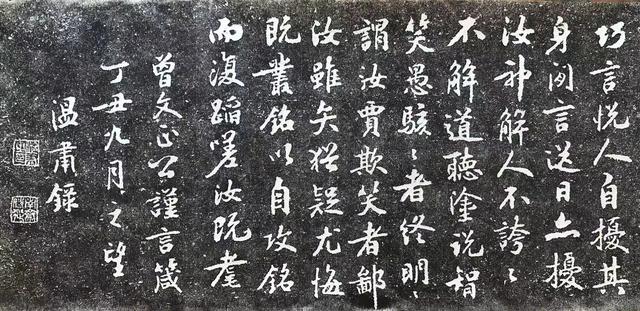 巧言悦人自擾其
身閒言送日亦擾
汝神解人不誇〻
不解道聽塗説智
笑愚駭〻者终明〻
謂汝賈欺笑者鄙
汝雖矢猶疑尤悔
既叢銘以自攻銘
而復蹈嗟汝既耄
曾文正公謹言箴
丁丑九月之望
温肅録